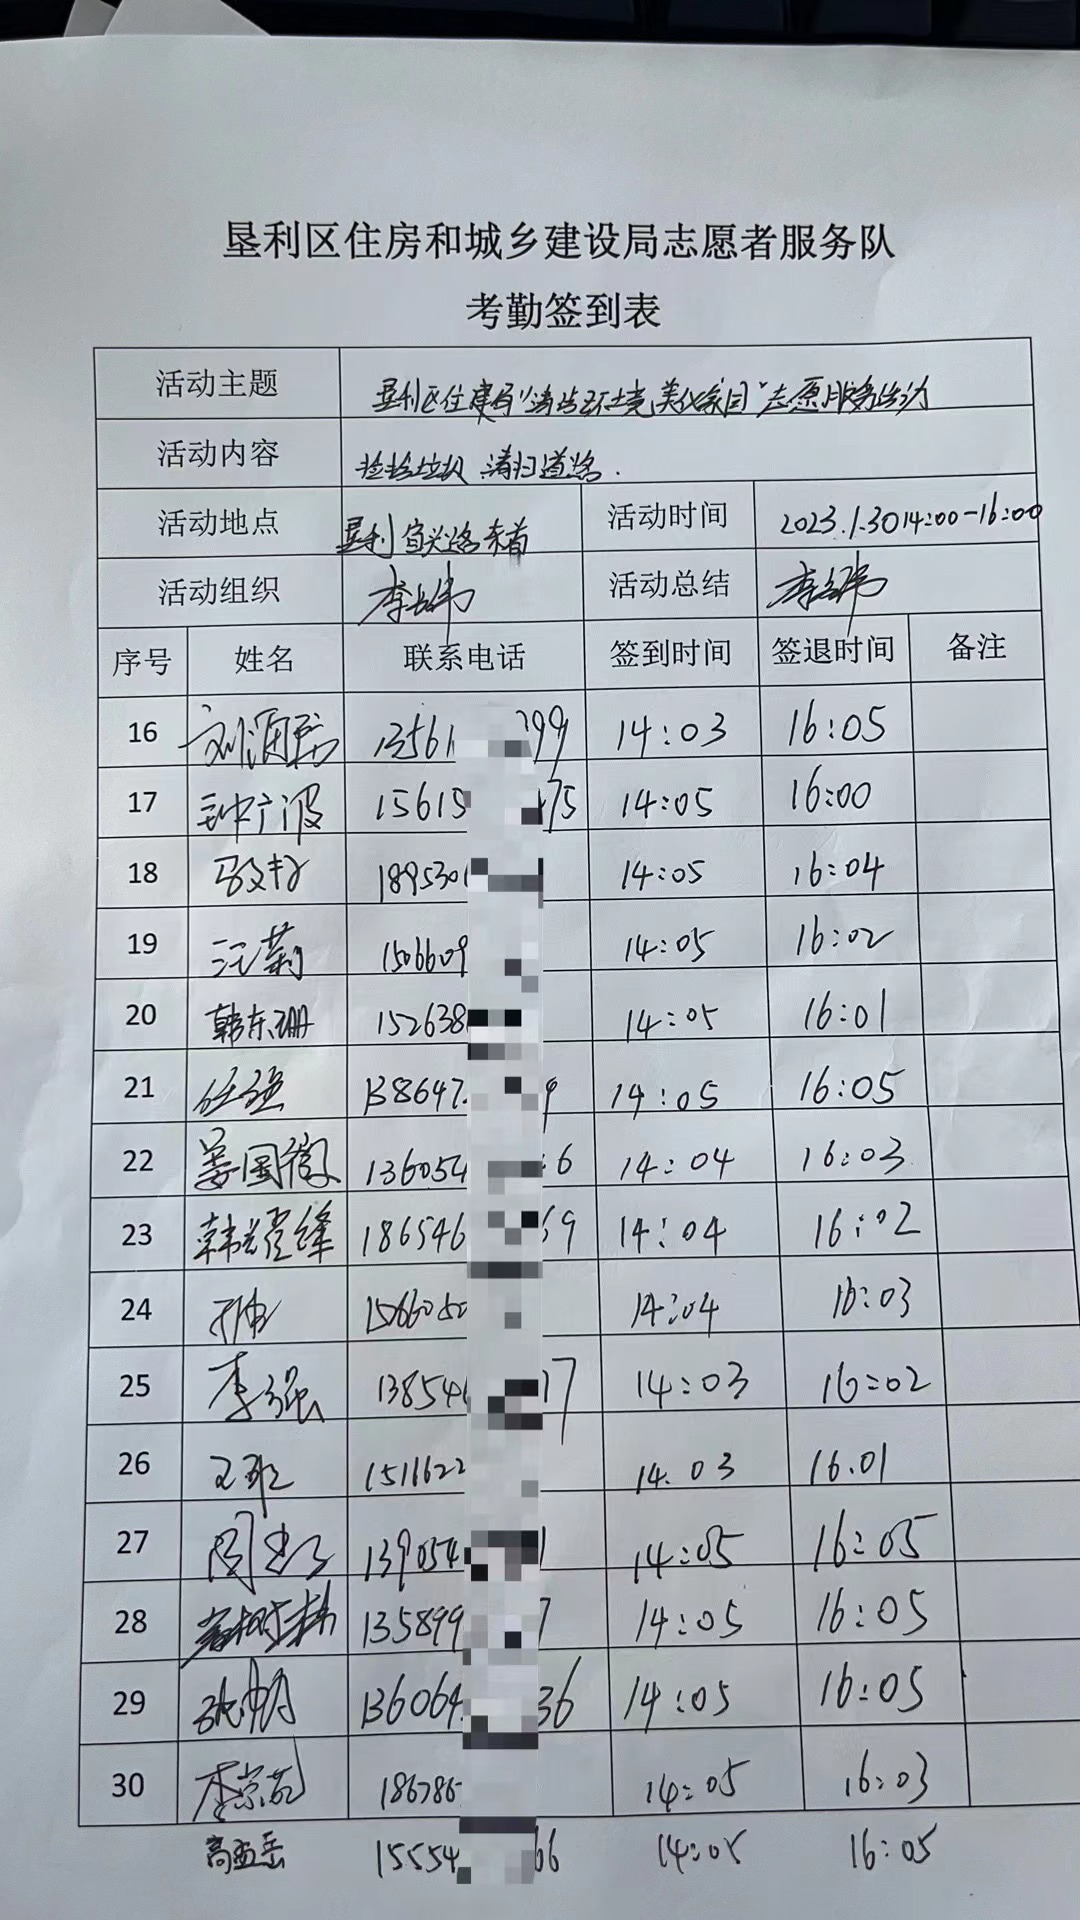 垦利区住房和城乡建设局志愿者服务队
考勤签到表
活动主题 垦利区住建局"清洁环境 美化家园"志愿服务活动
活动内容 捡拾垃圾 清扫道路.
活动地点 垦利宜兴路东首 活动时间 2023.1.30 14:00-16:00
活动组织 活动总结
序号 姓名 联系电话 签到时间 签退时间 备注
16 13561 799 14:03 16:05
17 钟广波 15615 475 14:05 16:00
18 189530 14:05 16:04
19 汪莉 1506609 14:05 16:02
20 韩东珊 152638 14:05 16:01
21 任强 138647 9 14:05 16:05
22 姜国徽 136054 6 14:04 16:03
23 韩耀锋 186546 69 14:04 16:02
24 14:04 16:03
25 李强 138546 17 14:03 16:02
26 1511622 14.03 16.01
27 139054 1 14:05 16:05
28 135899 7 14:05 16:05
29 张帅 136064 36 14:05 16:05
30 186786 14:05 16:03
高孟岳 15554 66 14:05 16:05